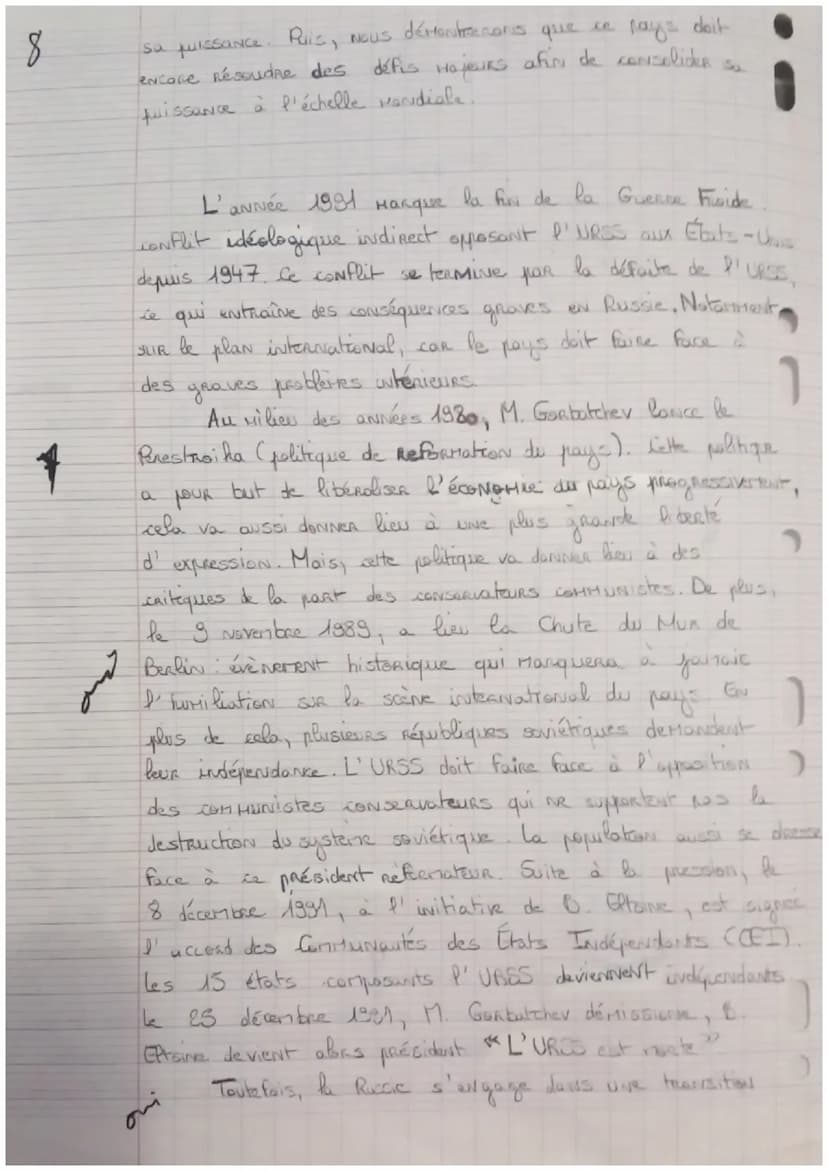 8
sa puissance. Puis, nous démontrerons que ce pays doit
encore résoudre des défis majeurs afin de consolider sa
puissance à l'échelle mondiale.
L'année 1991 marque la fin de la Guerre Froide
conflit idéologique indirect opposant l'URSS aux États-Unis
depuis 1947. Ce conflit se termine par la défaite de l'URSS,
ce qui entraîne des conséquences graves en Russie. Notamment
sur le plan international, car le pays doit faire face à
des graves problèmes intérieurs
Au milieu des années 1980, M. Gorbatchev lance la
Perestroïka (politique de reformation du pays). Cette politique
a pour but de libéraliser l'économie du pays progressivement,
cela va aussi donner lieu à une plus grande liberté
d'expression. Mais, cette politique va donner lieu à des
critiques de la part des conservateurs communistes. De plus,
le 9 novembre 1989, a lieu la Chute du Mur de
Berlin : évènement historique qui marquera à jamais
oui
l'humiliation sur la scène international du pays. En
plus de cela, plusieurs républiques soviétiques demandent
leur indépendance. L'URSS doit faire face à l'opposition
des communistes conservateurs qui ne supportent pas la
destruction du système soviétique. La population aussi se dresse
face à ce président réformateur. Suite à la pression, le
8 décembre 1991, à l'initiative de B. Eltsine, est signé
l'accord des Communautés des États Indépendants (CEI).
Les 15 états composants l'URSS deviennent indépendants
le 25 décembre 1991, M. Gorbatchev démissionne, B.
Eltsine devient alors président "L'URSS est morte"
Toutefois, la Russie s'engage dans une transition
oui